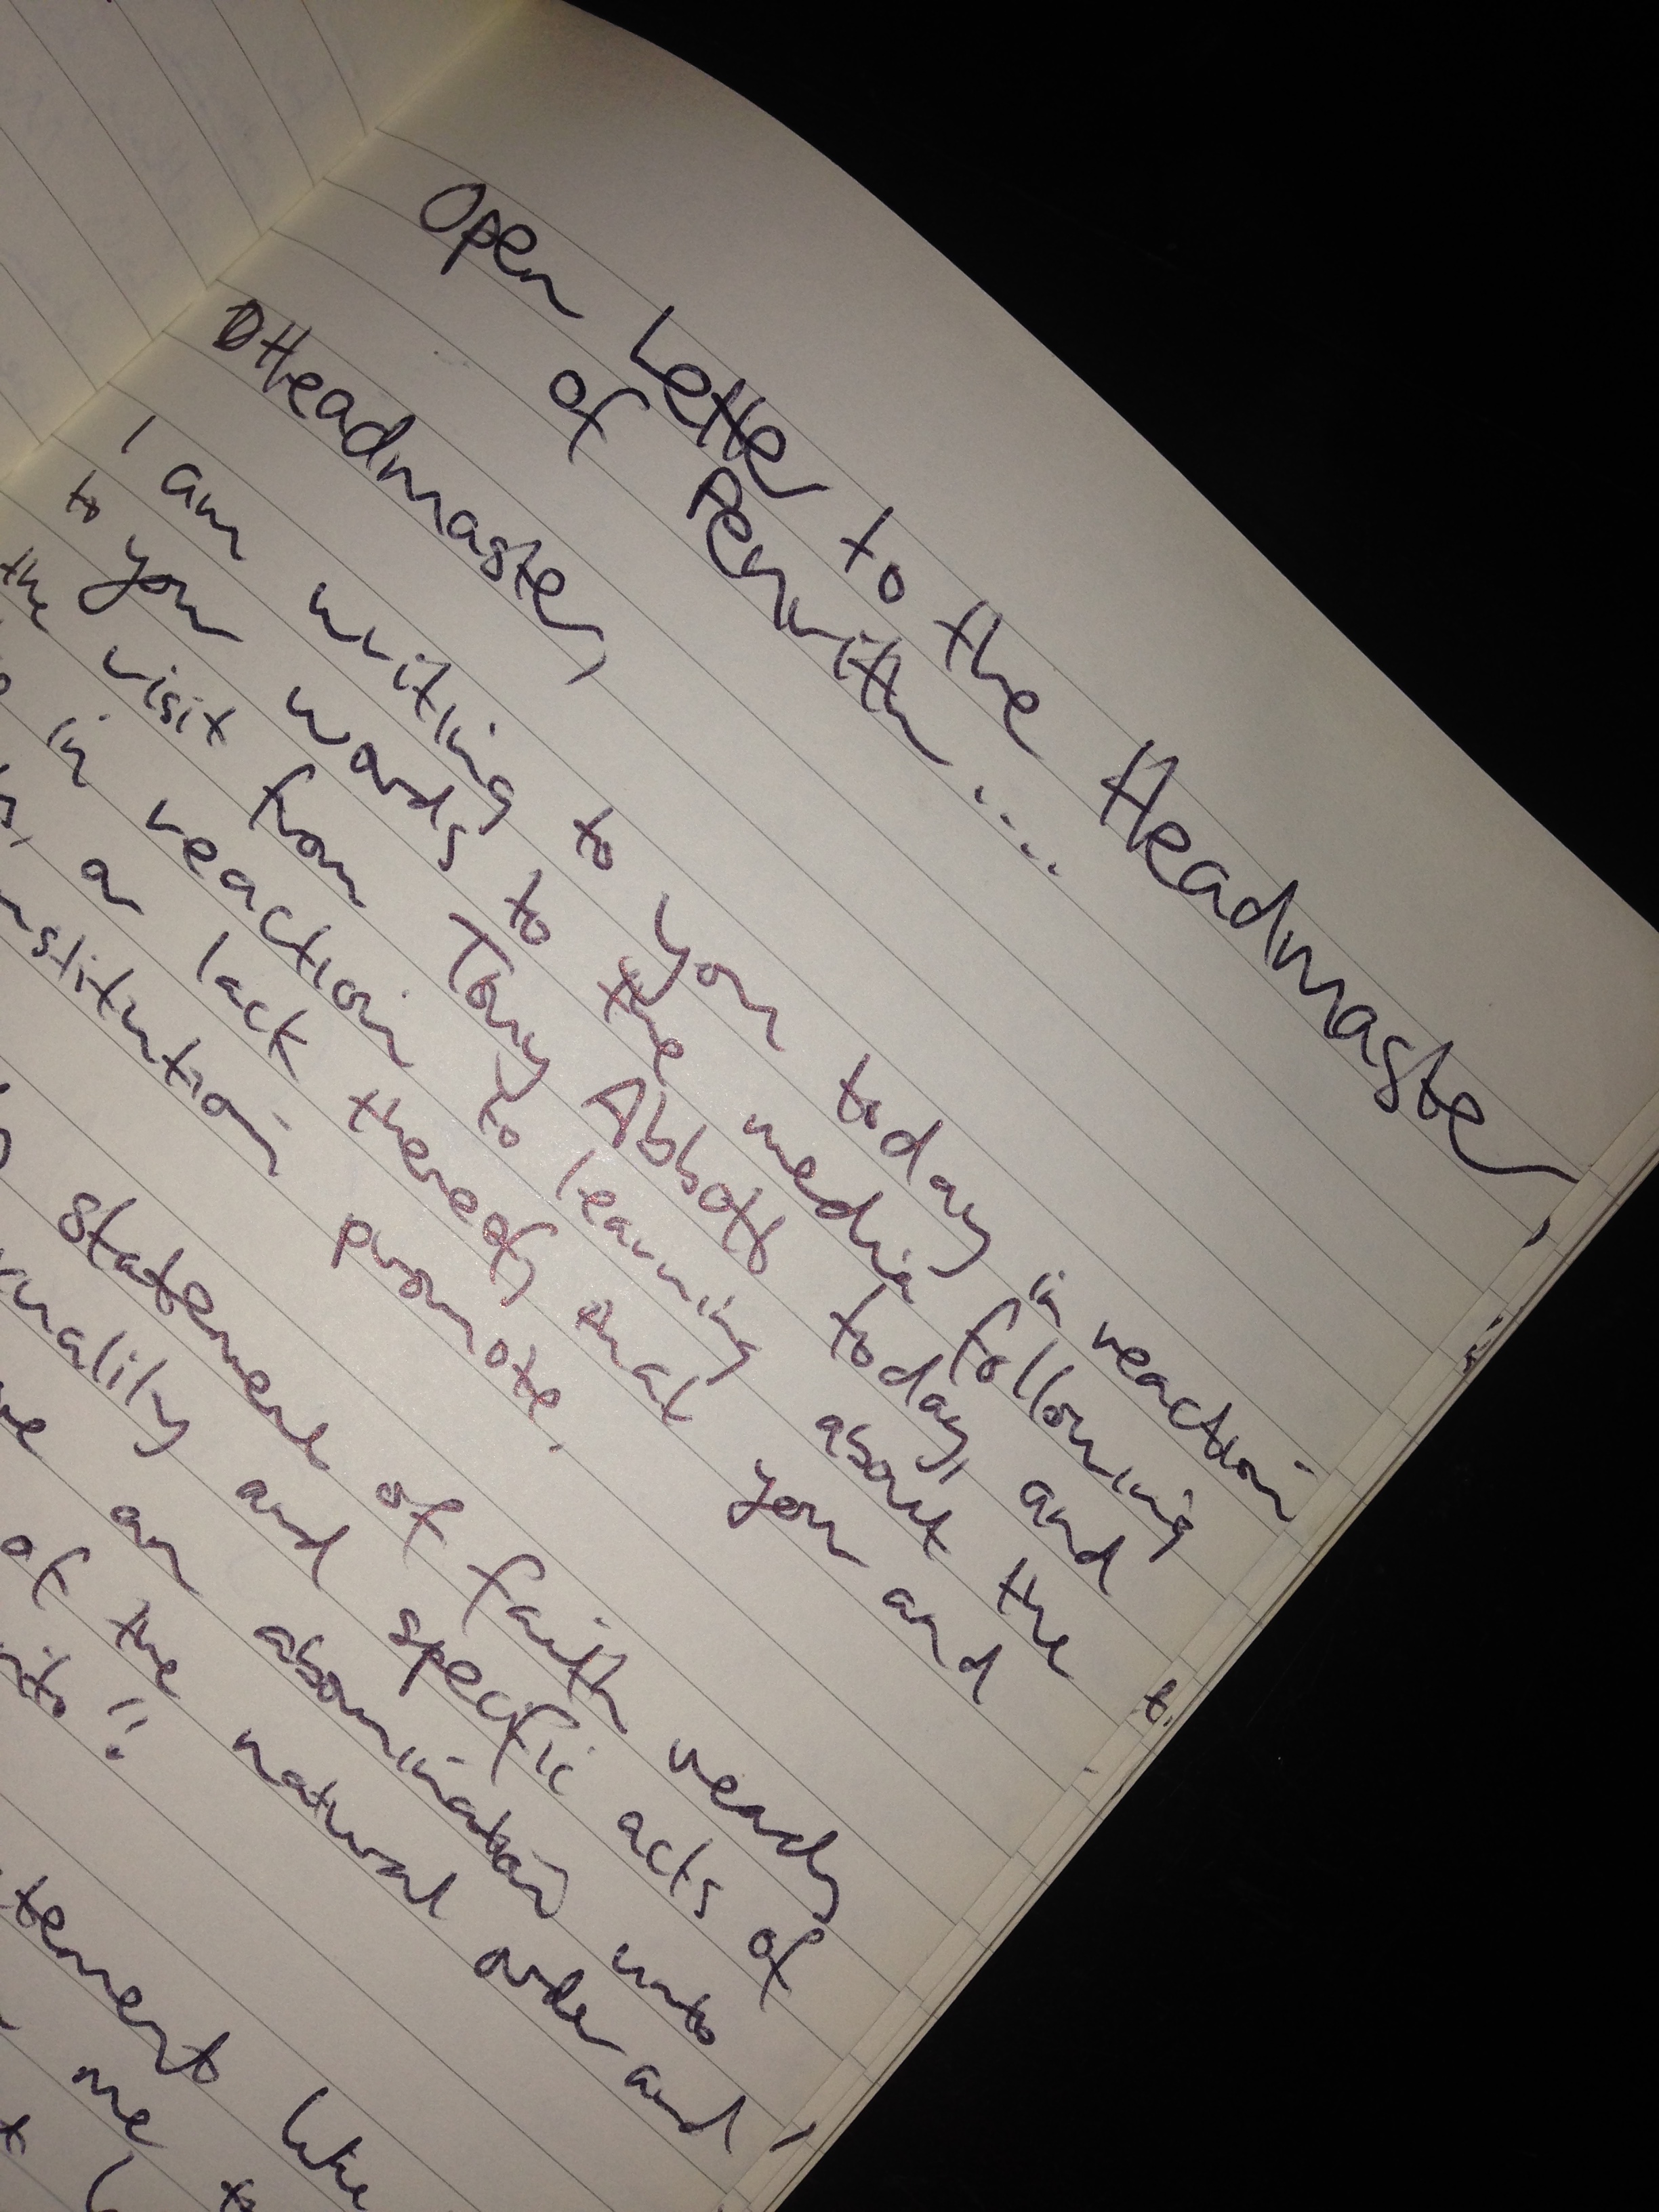 Open Letter to the Headmaster
of Penrith ....
Headmaster,
I am writing to you today in reaction
to your words to the media following
the visit from Tony Abbott today, and
in reaction to learning about the
or lack thereof, that you and
institution promote.
statement of faith ready
and specific acts of
an abomination unto
of the natural order and
statement like
me to